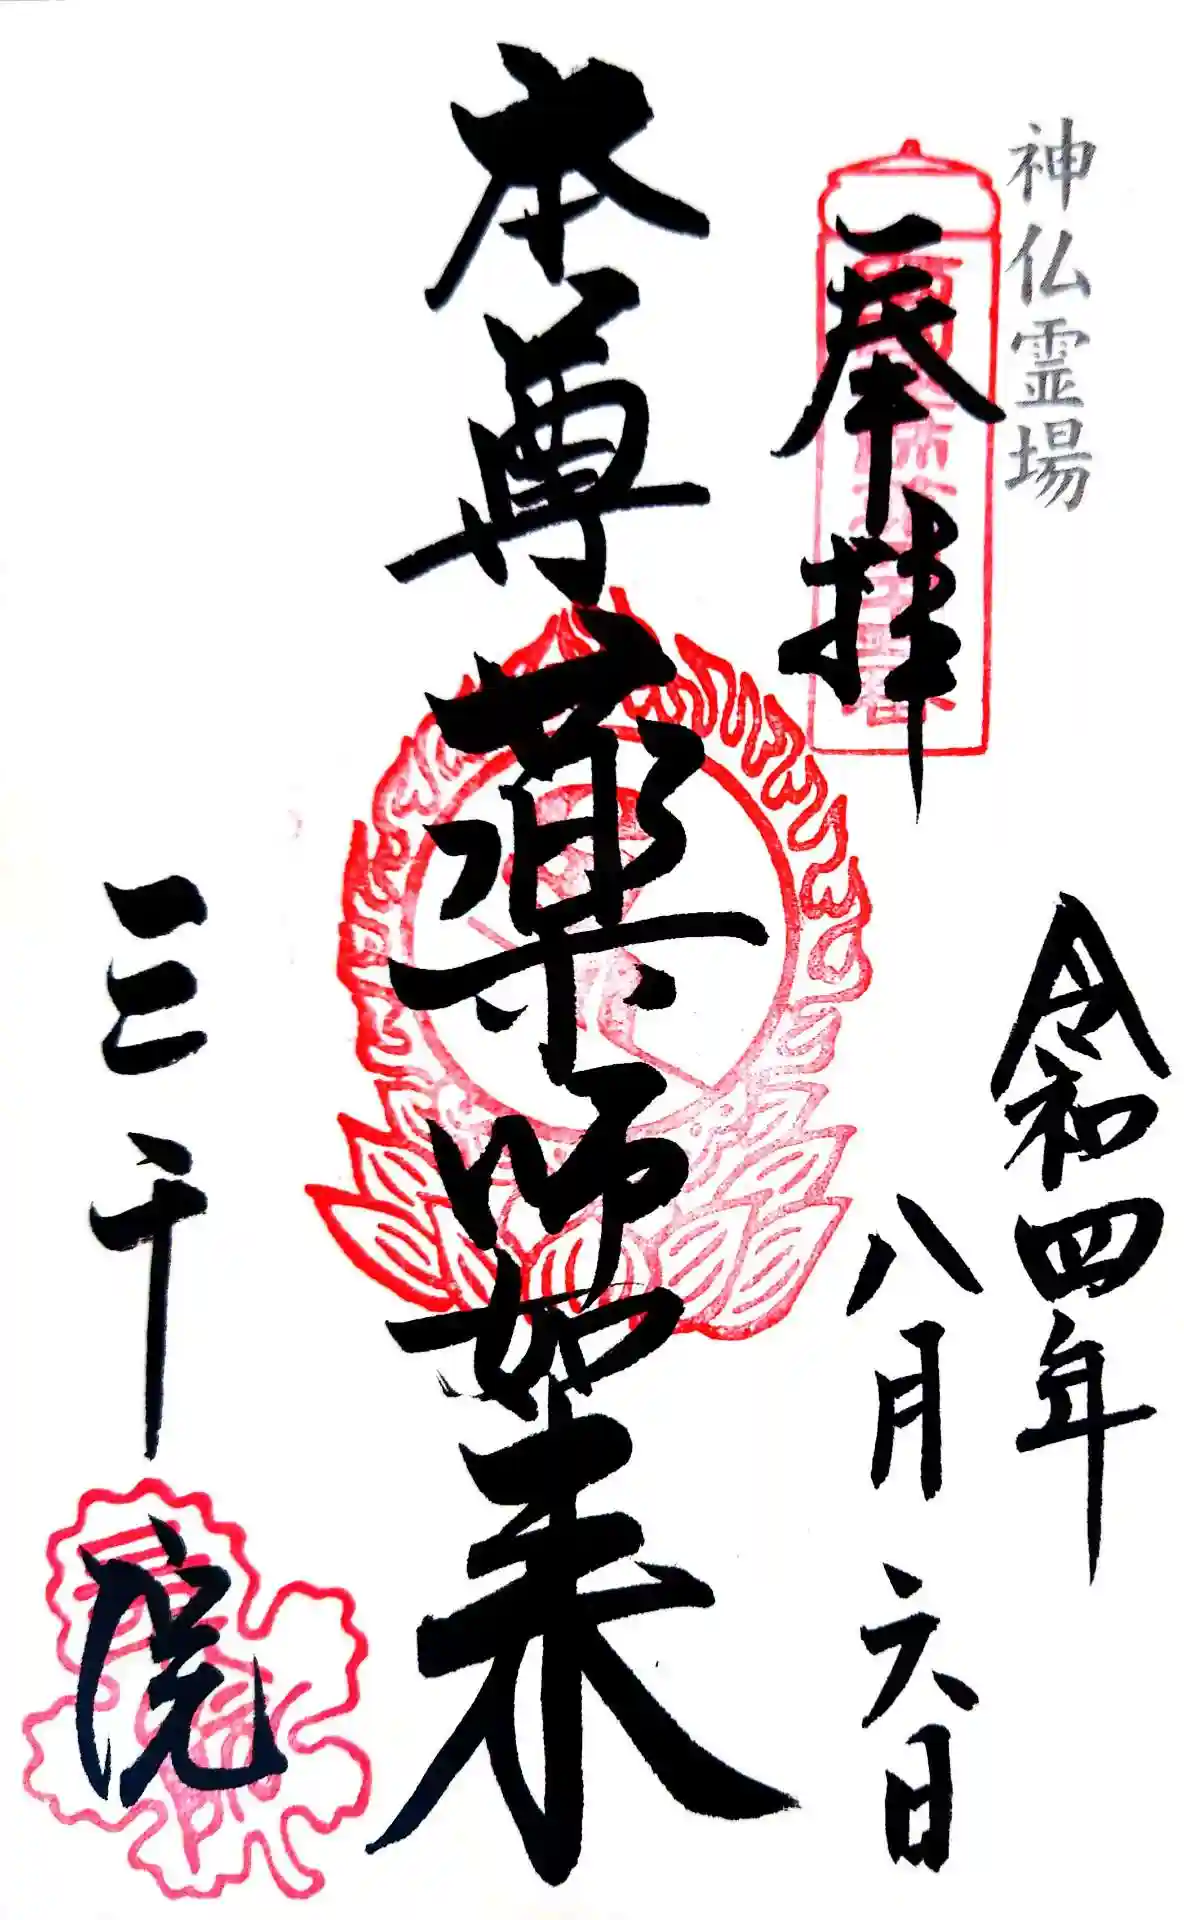 神仏霊場
奉拝
令和四年
八月六日
本尊薬師如来
三千院